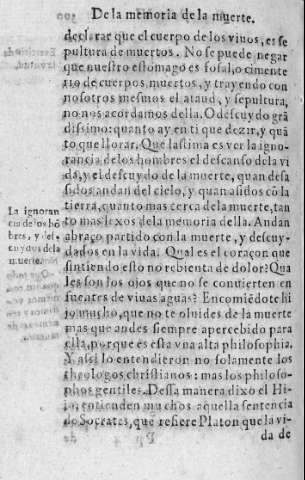 De la memoria de la muerte.
declarar que el cuerpo de los viuos, es se
pultura de muertos. No se puede negar
que nuestro estomago es fosal, o cimente
rio de cuerpos muertos, y trayendo con
nosotros mesmos el ataud, y sepultura,
no nos acordamos della. O descuydo grã
dissimo: quanto ay en ti que dezir, y quã
to que llorar. Que lastima es ver la igno-
rancia de los hombres el descanso de la vi
da, y el descuydo de la muerte, quan desa
sidos andan del cielo, y quan asidos cõ la
tierra, quanto mas cerca de la muerte, tan
to mas lexos de la memoria della. Andan
abraço partido con la muerte, y descuy-
dados en la vida. Qual es el coraçon que
sintiendo esto no rebienta de dolor? Qua
les son los ojos que no se conuierten en
fuentes de viuas aguas? Encomiẽdote hi
jo mucho, que no te oluides de la muerte
mas que andes siempre apercebido para
ella, porque es esta vna alta philosophia.
Y assi lo entendieron no solamente los
theologos christianos: mas los philoso-
phos gentiles. Dessa manera dixo el Hi-
jo, entienden muchos aquella sentencia
de Socrates, que refiere Platon que la vi-
da de
La ignoran
cia de los hõ
bres, y des-
cuydos de la
muerte.